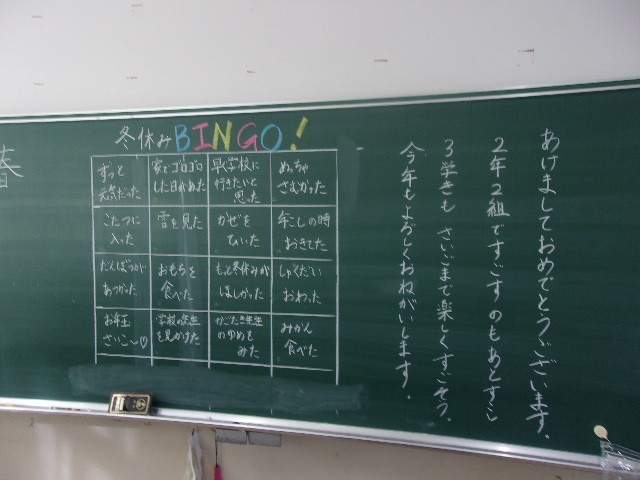 春
冬休みBINGO!
ずっと
元気だった
家でゴロゴロ
した日があった
早く学校に
行きたいと
思った
めっちゃ
さむかった
こたつに
入った
雪を見た
かぜを
ひいた
年こしの時
おきてた
だんぼうが
あつかった
おもちを
食べた
もっと冬休みが
ほしかった
しゅくだい
おわった
お年玉
さいこ〜♡
学校の先生
を見かけた
先生
のゆめを
みた
みかん
食べた
あけましておめでとうございます。
2年2組ですごすのもあとすこし
3学きも さいごまで楽しくすごそう。
今年もよろしくおねがいします。